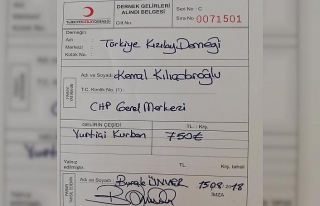 DERNEK GELİRLERİ
ALINDI BELGESİ
Seri No : C
Cilt No
Sıra No 0071501
Derneğin
Adı : Türkiye Kızılay Derneği
Merkezi
Kütük No
Adı ve Soyadı Kemal Kılıçdaroğlu
T.C. Kimlik No. (1)
CHP Genel Merkezi
GELİRİN ÇEŞİDİ TL. Krş.
Yurtiçi Kurban 750₺
Yalnız TL. Krş. tahsil
edilmiştir.
Adı ve Soyadı Burak ÜNVER 15.08.2018
İMZA